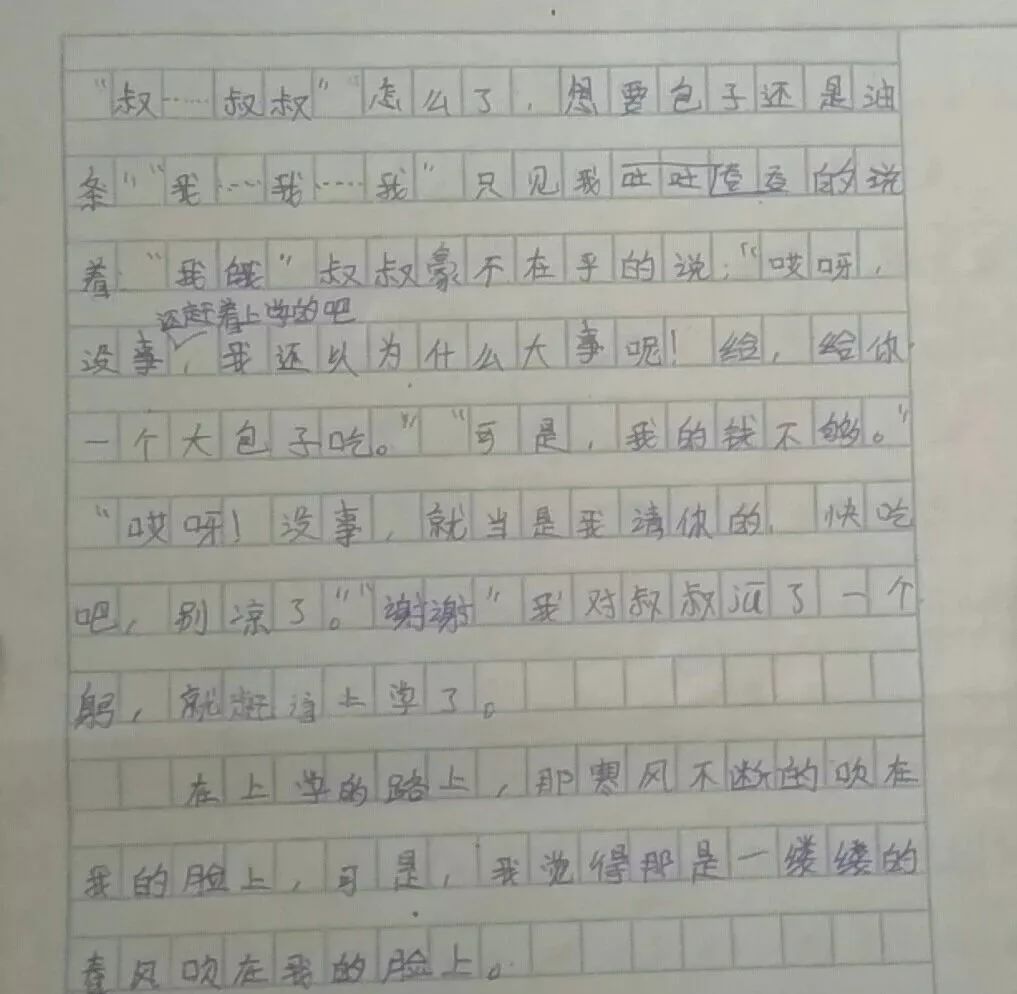 “叔……叔叔”“怎么了，想要包子还是油
条”“我……我……我”只见我吐吐的说
着：“我饿”叔叔豪不在乎的说：“哎呀，
还赶着上学的吧
没事，我还以为什么大事呢！给，给你
一个大包子吃。”“可是，我的钱不够。”
“哎呀！没事，就当是我请你的，快吃
吧，别凉了。”“谢谢”我对叔叔了一个
躬，就赶着上学了。
在上学的路上，那寒风不断的吹在
我的脸上，可是，我觉得那是一缕缕的
春风吹在我的脸上。